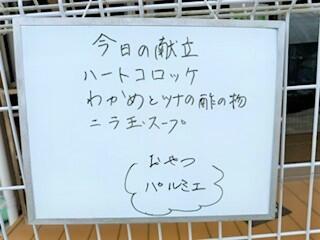 今日の献立
ハートコロッケ
わかめとツナの酢の物
ニラ玉スープ
おやつ
パルミエ